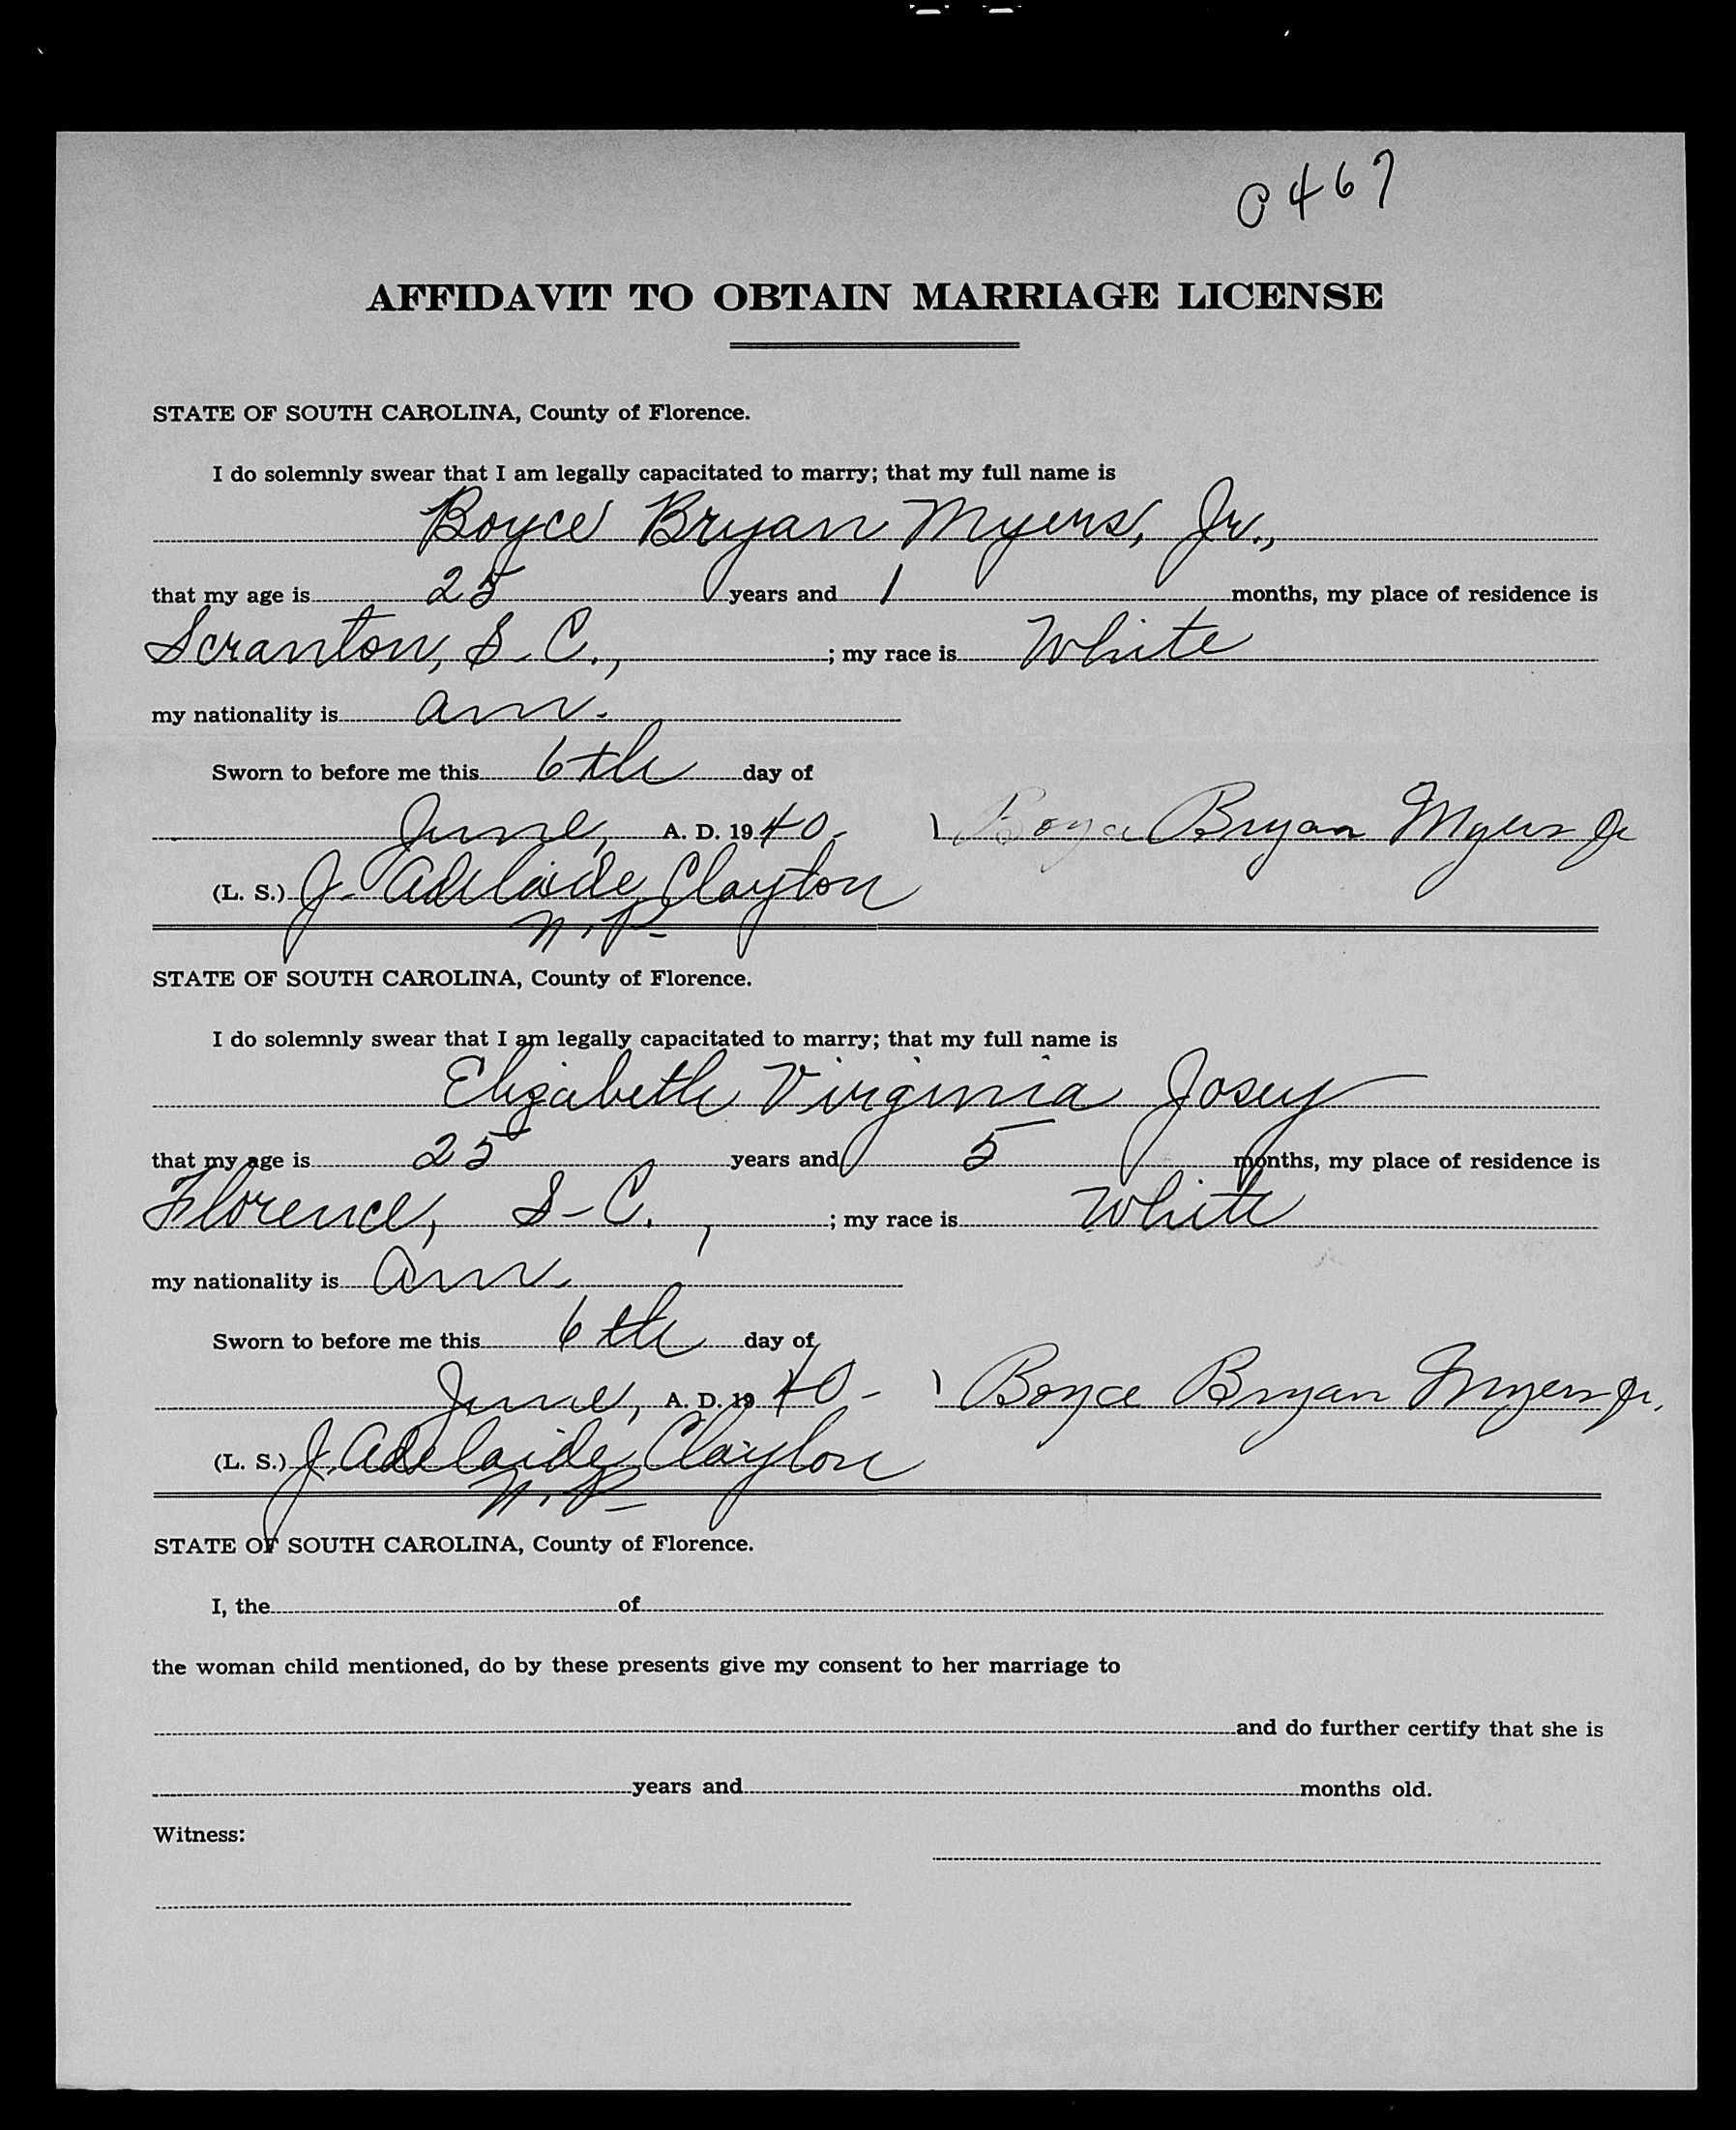 0467
AFFIDAVIT TO OBTAIN MARRIAGE LICENSE
STATE OF SOUTH CAROLINA, County of Florence.
I do solemnly swear that I am legally capacitated to marry; that my full name is
Boyce Bryan Myers, Jr.,
that my age is 25 years and 1 months, my place of residence is
Scranton, S. C., ; my race is White
my nationality is am.
Sworn to before me this 6th day of
June, A. D. 1940- Boyce Bryan Myers Jr
(L. S.) J. Adelaide Clayton
N. P.
STATE OF SOUTH CAROLINA, County of Florence.
I do solemnly swear that I am legally capacitated to marry; that my full name is
Elizabeth Virginia Josey
that my age is 25 years and 5 months, my place of residence is
Florence, S-C. , ; my race is White
my nationality is am
Sworn to before me this 6th day of
June, A. D. 19 40- Boyce Bryan Myers Jr.
(L. S.) J. Adelaide Clayton
N. P.
STATE OF SOUTH CAROLINA, County of Florence.
I, the of
the woman child mentioned, do by these presents give my consent to her marriage to
and do further certify that she is
years and months old.
Witness: